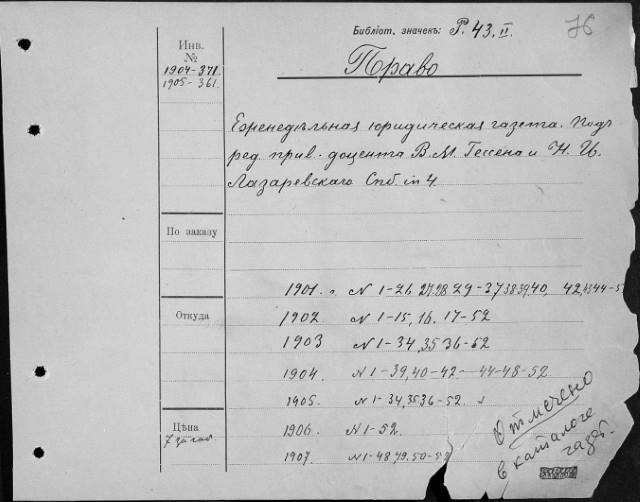 Библіот. значекъ: Р. 43. II.
76
Инв.
№
1904-371
1905-361.
Право
Еженедѣльная юридическая газета. Подъ
ред. прив.-доцента В.М. Гессена и Н. И.
Лазаревскаго Спб. in 4
По заказу
1901. г. N 1-26. 27.28 29-37 38 39, 40, 42, 43 44-5
Откуда
1902 N 1-15, 16. 17-52
1903 N 1-34, 35 36-52
1904. N 1-39, 40-42- 44-48-52.
1905. N 1-34, 35 36-52.
Цѣна
7 за год
1906. N 1-52.
1907. N 1-48 49. 50-52
Отмечено
в каталоге
газет.